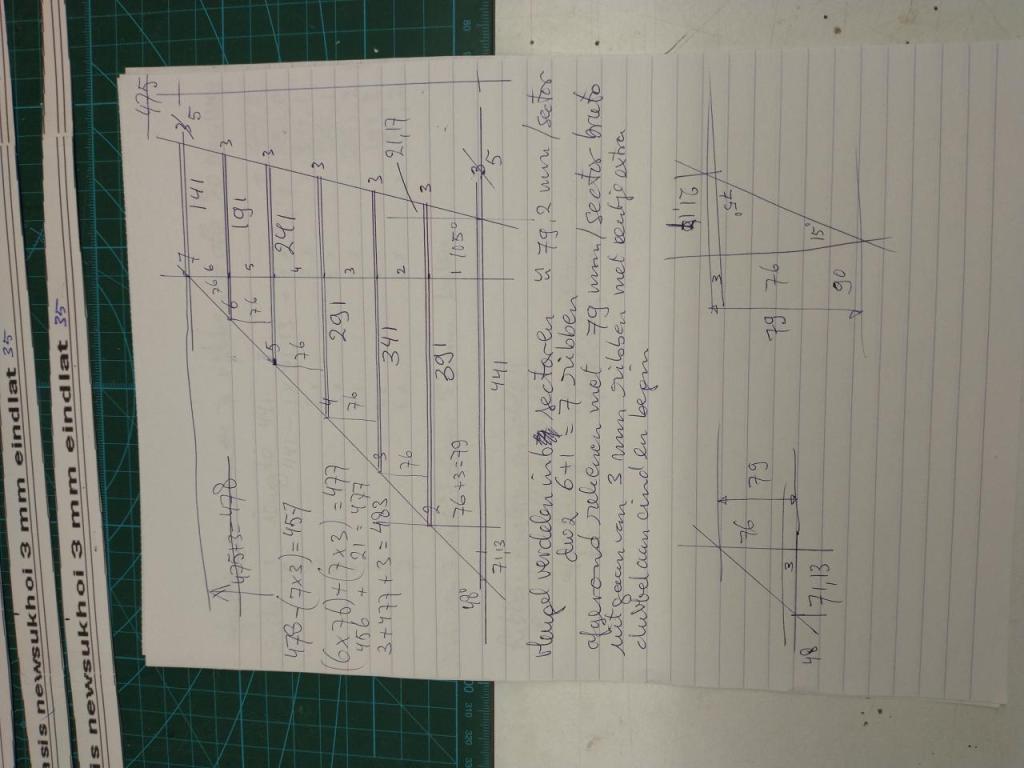 asis newsukhoi 3 mm eindlat 35
is newsukhoi 3 mm eindlat 35
475
475+3=478
7 141 3 5
76
6 191 3
76 5
5 241 3
76 4
4 291 3
76 3
3 341 3
76 2 21,17
2 391 3
76+3=79 1 105°
48° 7,13 441 3 5
478-(7x3)=457
(6x76)+(7x3)=477
456 + 21 = 477
3+477+3=483
vleugel verdelen in 6 sectoren a 79,2 mm/sector
dus 6+1=7 ribben
afgerond rekenen met 79 mm/sector bruto
uitgaan van 3 mm ribben met
einden begin
76 79
3
48 7,13
21,17
3 75°
79 76
15°
90